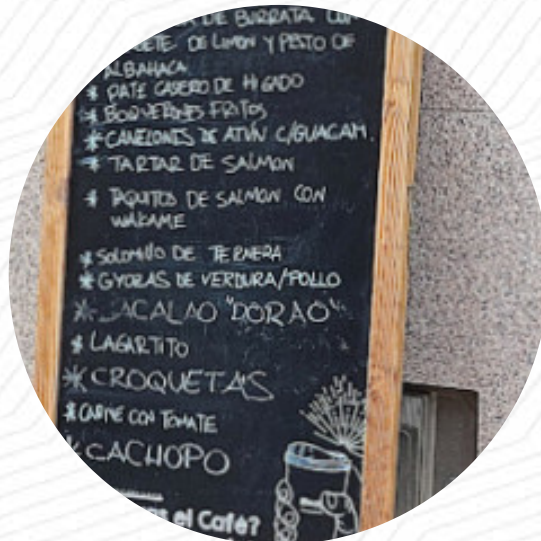 DE BURRATA CON
DE LIMON Y PESTO DE
ALBAHACA
* PATE CASERO DE HIGADO
* BOQUERONES FRITOS
* CANELONES DE ATUN C/GUACAM.
* TARTAR DE SALMON
* TAQUITOS DE SALMON CON
WAKAME
* SOLOMILLO DE TERNERA
* GYOZAS DE VERDURA/POLLO
* BACALAO "DORAO"
* LAGARTITO
* CROQUETAS
* CARNE CON TOMATE
* CACHOPO
el Café?